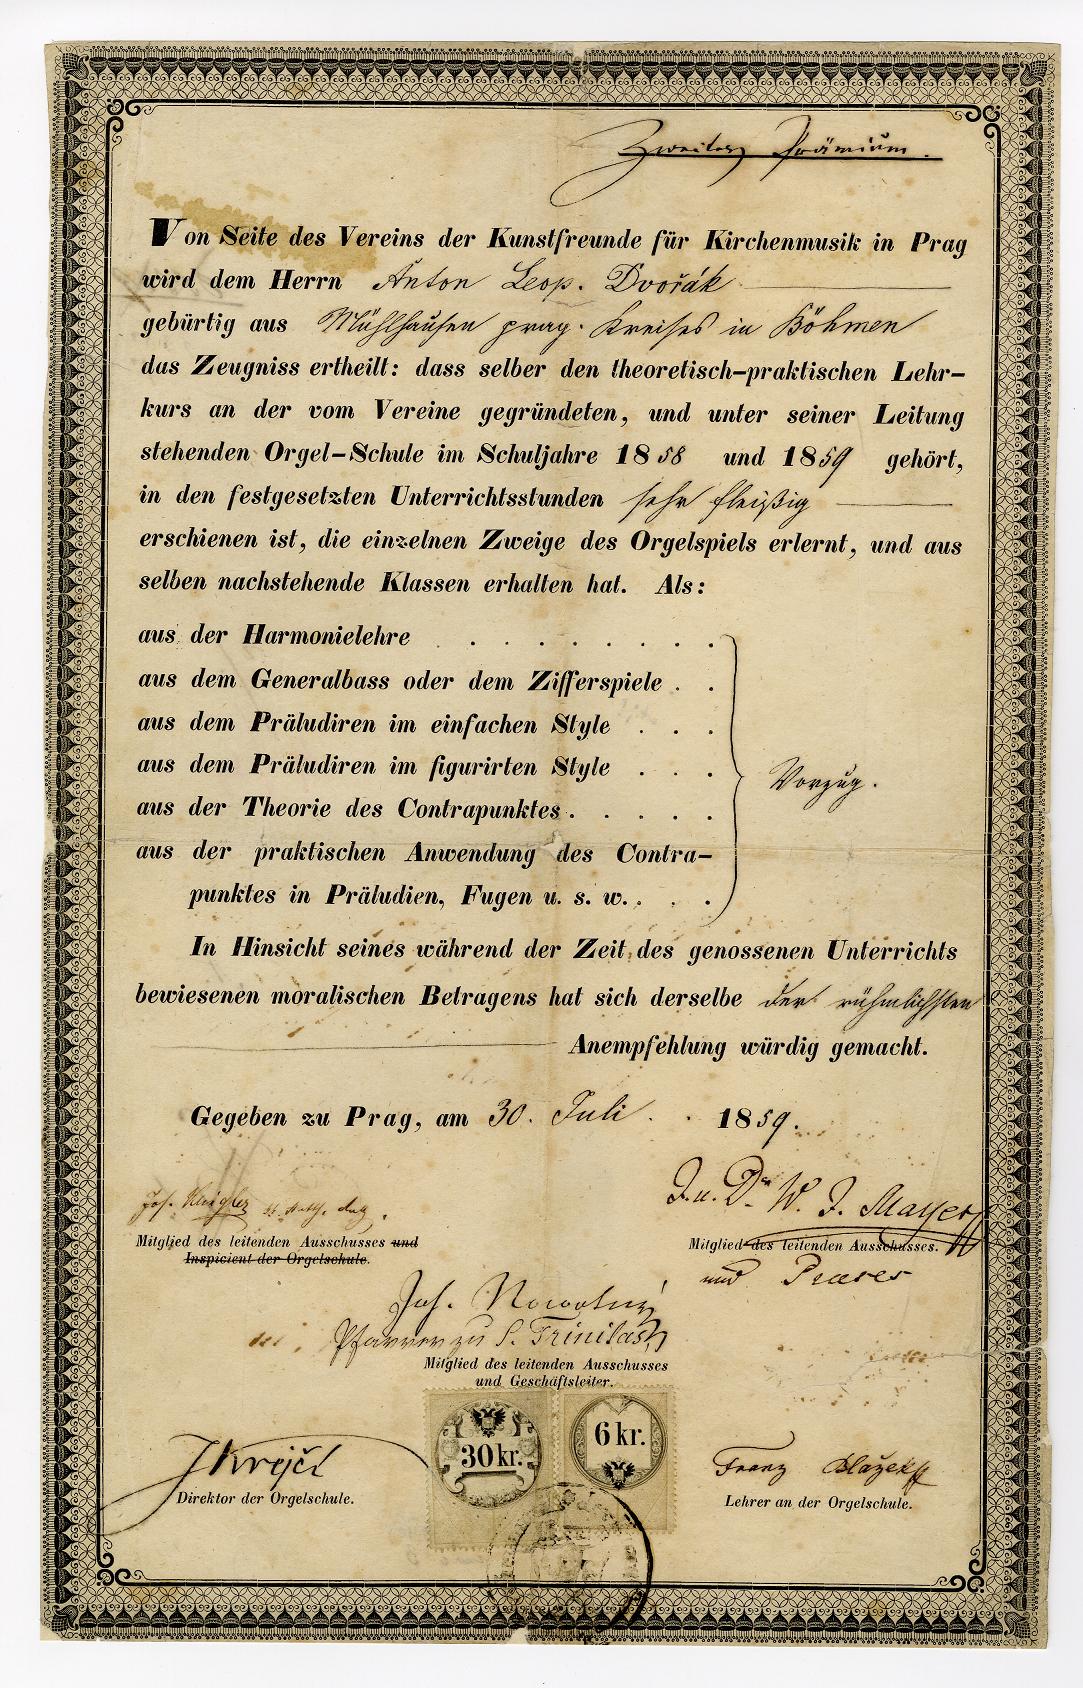 Zweites Prämium.
Von Seite des Vereins der Kunstfreunde für Kirchenmusik in Prag
wird dem Herrn Anton Leop. Dvořák
gebürtig aus Mühlhausen prag. Kreises in Böhmen
das Zeugniss ertheilt: dass selber den theoretisch-praktischen Lehr-
kurs an der vom Vereine gegründeten, und unter seiner Leitung
stehenden Orgel-Schule im Schuljahre 1858 und 1859 gehört,
in den festgesetzten Unterrichtsstunden sehr fleißig
erschienen ist, die einzelnen Zweige des Orgelspiels erlernt, und aus
selben nachstehende Klassen erhalten hat. Als:
aus der Harmonielehre . . . . . . . .
aus dem Generalbass oder dem Zifferspiele . .
aus dem Präludiren im einfachen Style . . .
aus dem Präludiren im figurirten Style . . . Vorzug.
aus der Theorie des Contrapunktes . . . . .
aus der praktischen Anwendung des Contra-
punktes in Präludien, Fugen u. s. w. . . .
In Hinsicht seines während der Zeit des genossenen Unterrichts
bewiesenen moralischen Betragens hat sich derselbe der rühmlichsten
Anempfehlung würdig gemacht.
Gegeben zu Prag, am 30. Juli 1859.
Jos.
J. u. Dr W. J. Mayer
Mitglied des leitenden Ausschusses und
Inspicient der Orgelschule.
Mitglied des leitenden Ausschusses.
und Praeses
Jos. Nowotný
Pfarrer zu S. Trinitas
Mitglied des leitenden Ausschusses
und Geschäftsleiter.
30 kr.
6 kr.
J Krejčí
Direktor der Orgelschule.
Franz Blažek
Lehrer an der Orgelschule.